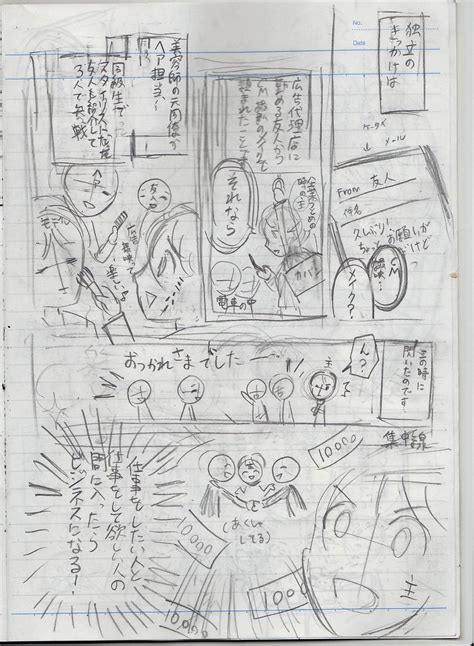 独立の
きっかけは
ケータイ
メール
From 友人
件名
久しぶり!
ちょっと
お願いが
だけど
CM
メイク?
広告代理店に
勤める友人から
頼まれたことです
会社づとめの
時の主
それなら
カバン
電車の中
美容師の元同僚が
ヘア担当
同級生で
スタイリストだった
友人も紹介して
3人で参戦
ヘア
友人
モデル
楽しいよ
その時に
閃いたのです
ん?
主
おつかれさまでしたー
集中線
仕事をしたい人と
仕事をして欲しい人の
間に入ったら
ビジネスになる!
主
(あくしゅ
してる)
10000
10000
10000
10000
主
No.
Date